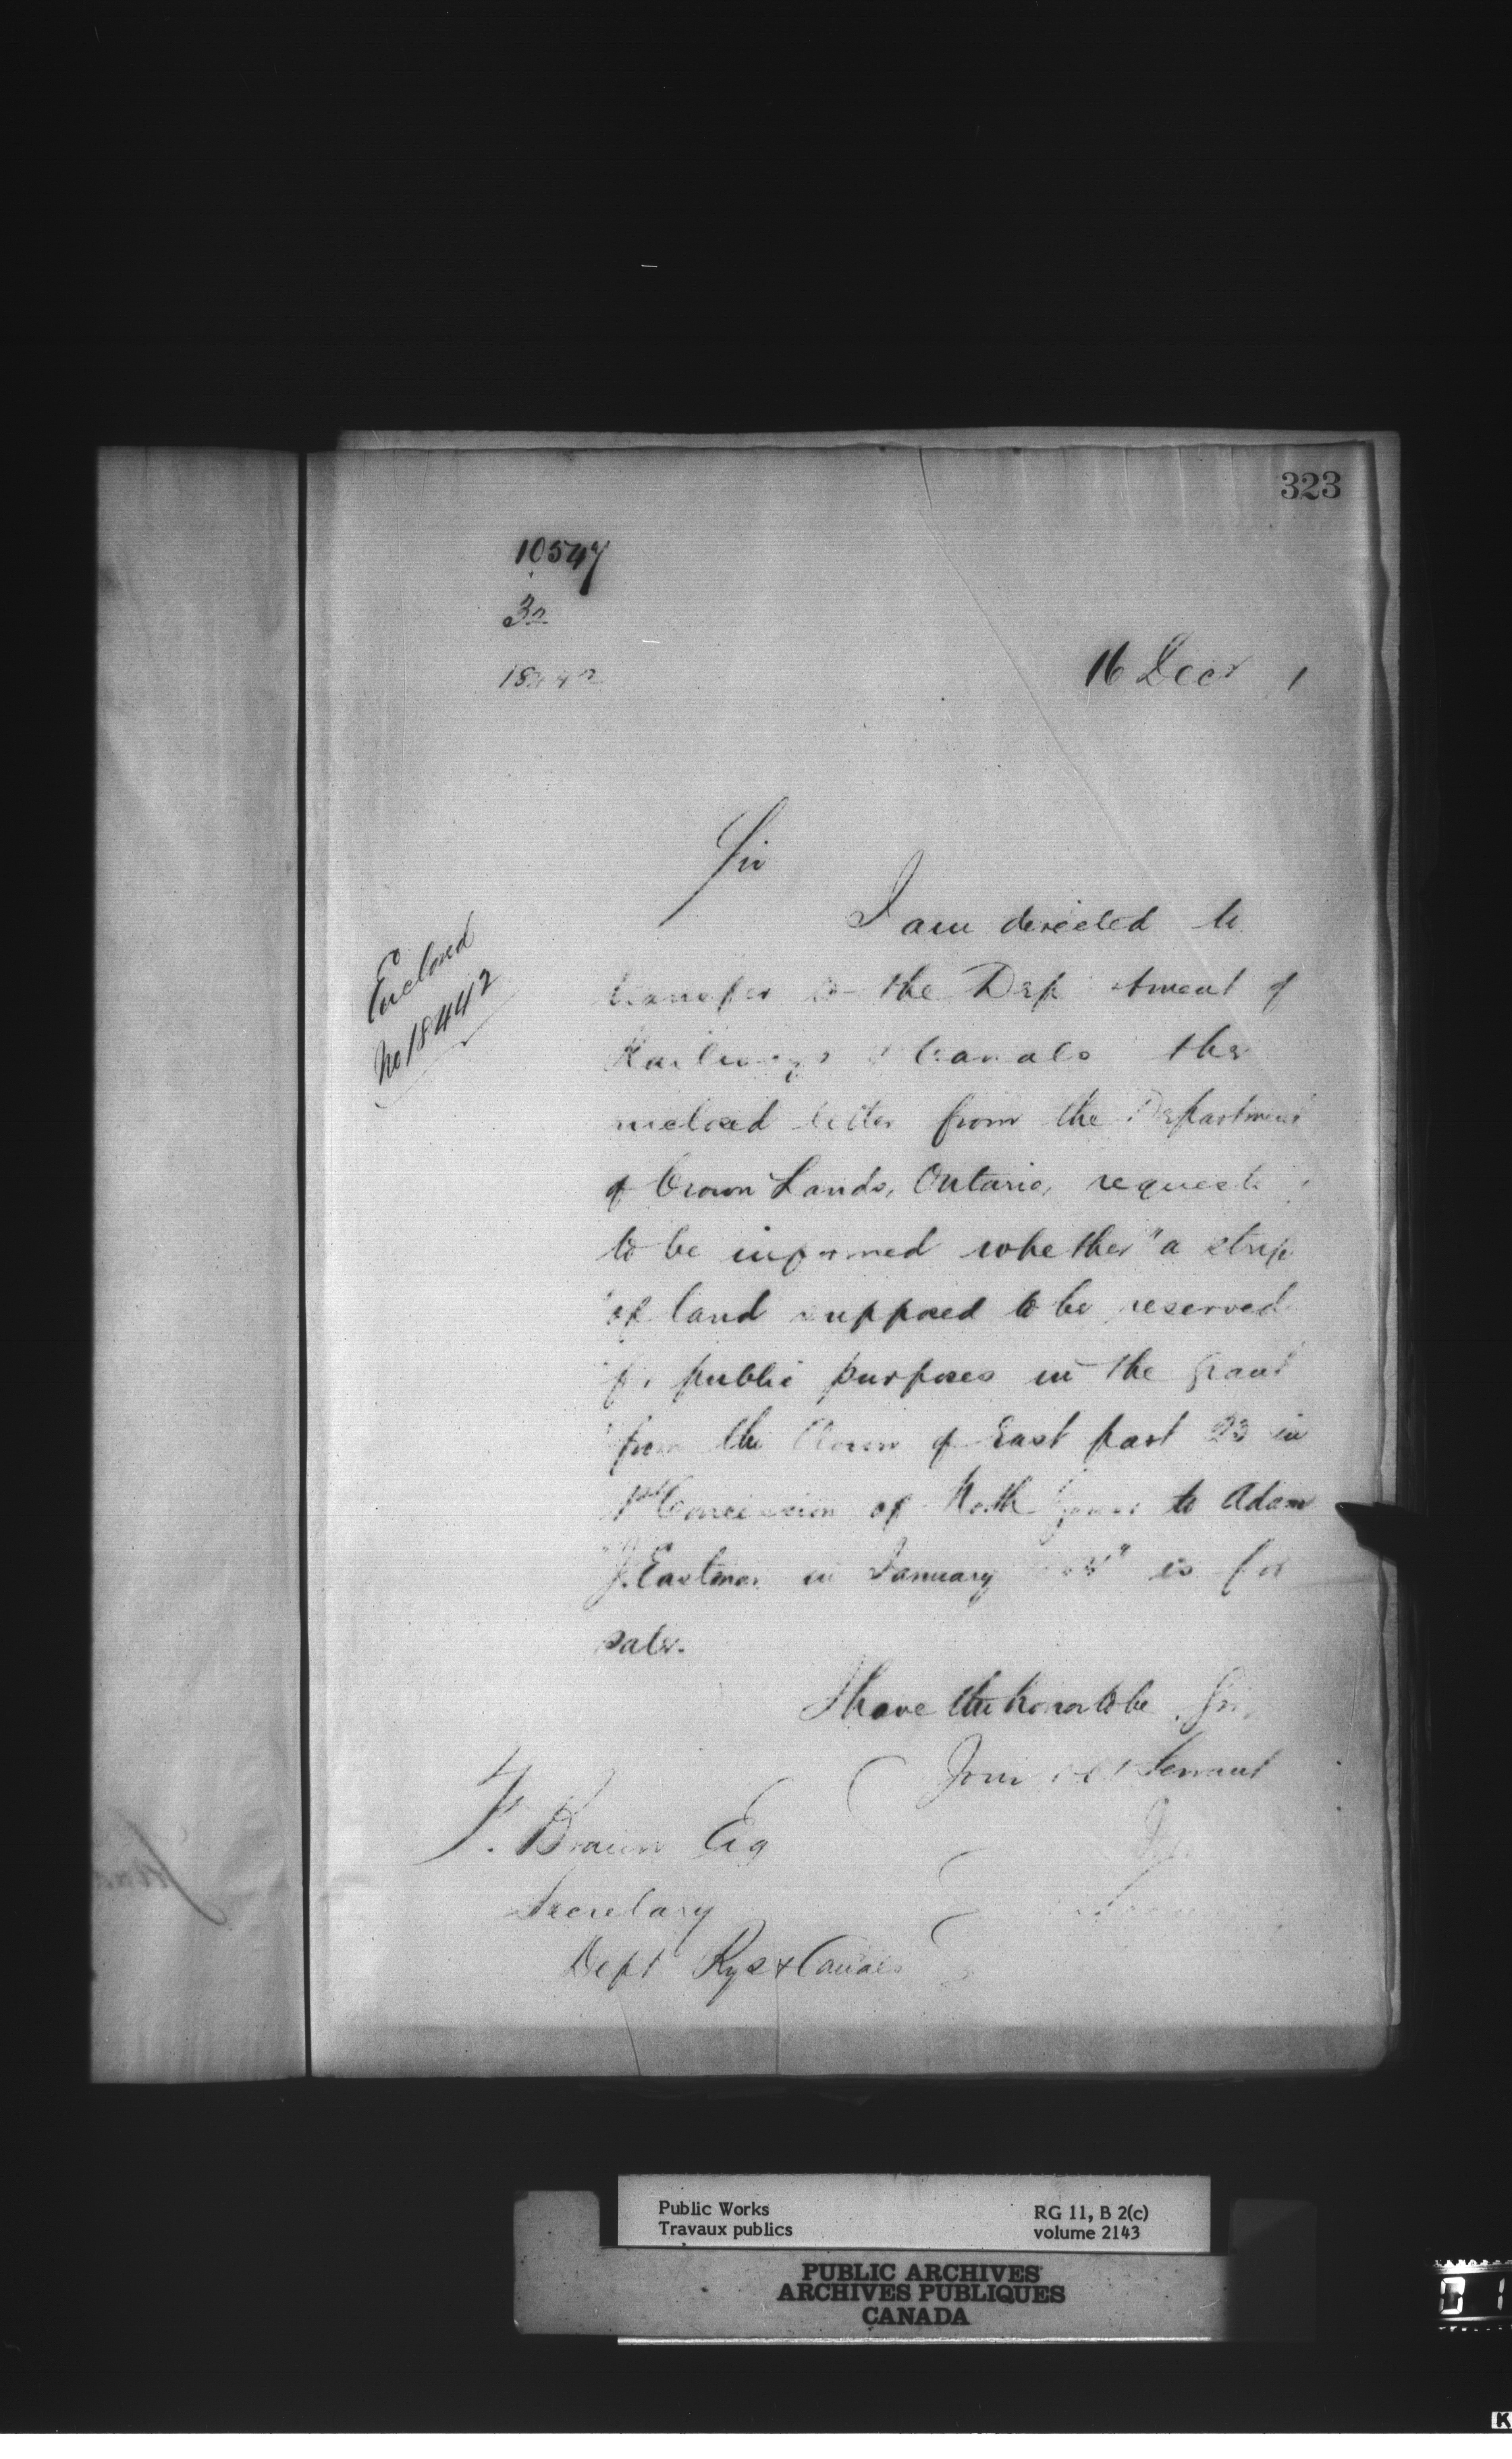 323
10547
32
18442
16 Decr 1
Sir
Enclosed
No 18442
I am directed to
transfer to the Department of
Railways & Canals the
inclosed letter from the Department
of Crown Lands, Ontario, requesting
to be informed whether "a strip
"of land supposed to be reserved
"for public purposes in the grant
"from the Crown of East part 23 in
"1st Concession of North to Adam
"J. Eastman in January " is for
sale.
I have the honor to be, Sir,
Your obt Servant
F. Braun Esq
Secretary
Dept Rys & Canals
Public Works
Travaux publics
RG 11, B 2(c)
volume 2143
PUBLIC ARCHIVES
ARCHIVES PUBLIQUES
CANADA